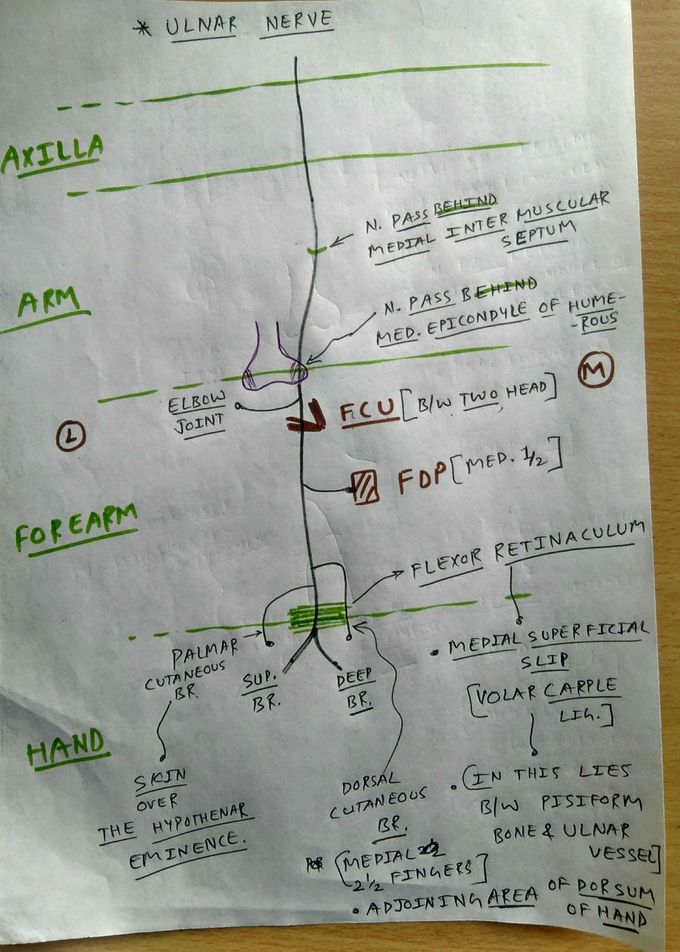 * ULNAR NERVE
AXILLA
N. PASS BEHIND
MEDIAL INTER MUSCULAR
SEPTUM
ARM
N. PASS BEHIND
MED. EPICONDYLE OF HUME-
-ROUS
M
ELBOW
JOINT
L
FCU [B/W TWO HEAD]
FDP [MED. 1/2]
FOREARM
FLEXOR RETINACULUM
PALMAR
CUTANEOUS
BR.
SUP.
BR.
DEEP
BR.
• MEDIAL SUPERFICIAL
SLIP
[VOLAR CARPLE
LIG.]
HAND
SKIN
OVER
THE HYPOTHENAR
EMINENCE.
DORSAL
CUTANEOUS
BR.
[MEDIAL
2 1/2 FINGERS]
• ADJOINING AREA OF DORSUM
OF HAND
• (IN THIS LIES
B/W PISIFORM
BONE & ULNAR
VESSEL]